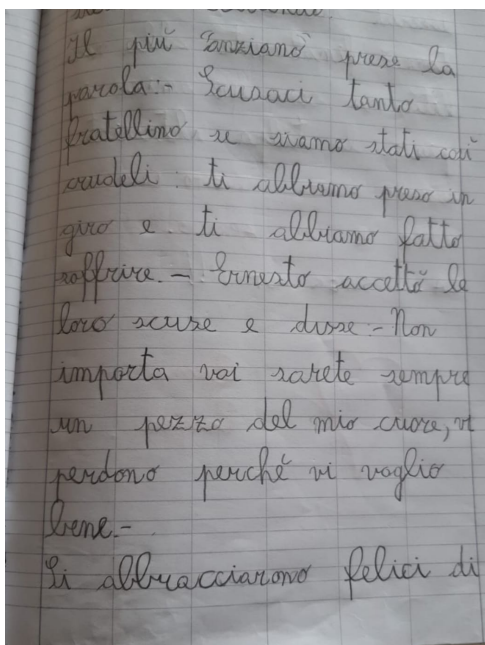 Il più "anziano" prese la
parola:- Scusaci tanto
fratellino se siamo stati così
crudeli: ti abbiamo preso in
giro e ti abbiamo fatto
soffrire.- Ernesto accettò le
loro scuse e disse:- Non
importa voi sarete sempre
un pezzo del mio cuore, vi
perdono perché vi voglio
bene.-
Si abbracciarono felici di